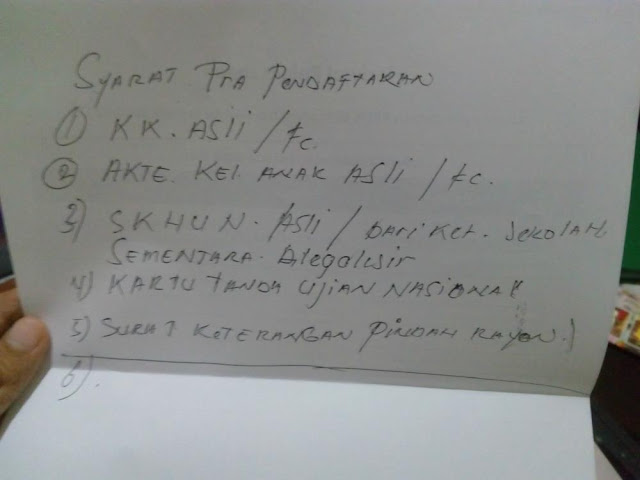 SYARAT PRA PENDAFTARAN
① KK. ASli / Fc.
② AKTE. KEl. ANAK ASli / Fc.
3) SKHUN. ASli / DARI KET. SEKOLAH
SEMENTARA. Dilegalisir
4) KARTU TANDA UJIAN NASIONAL
5) SURAT KETERANGAN PINDAH RAYON.)
6).